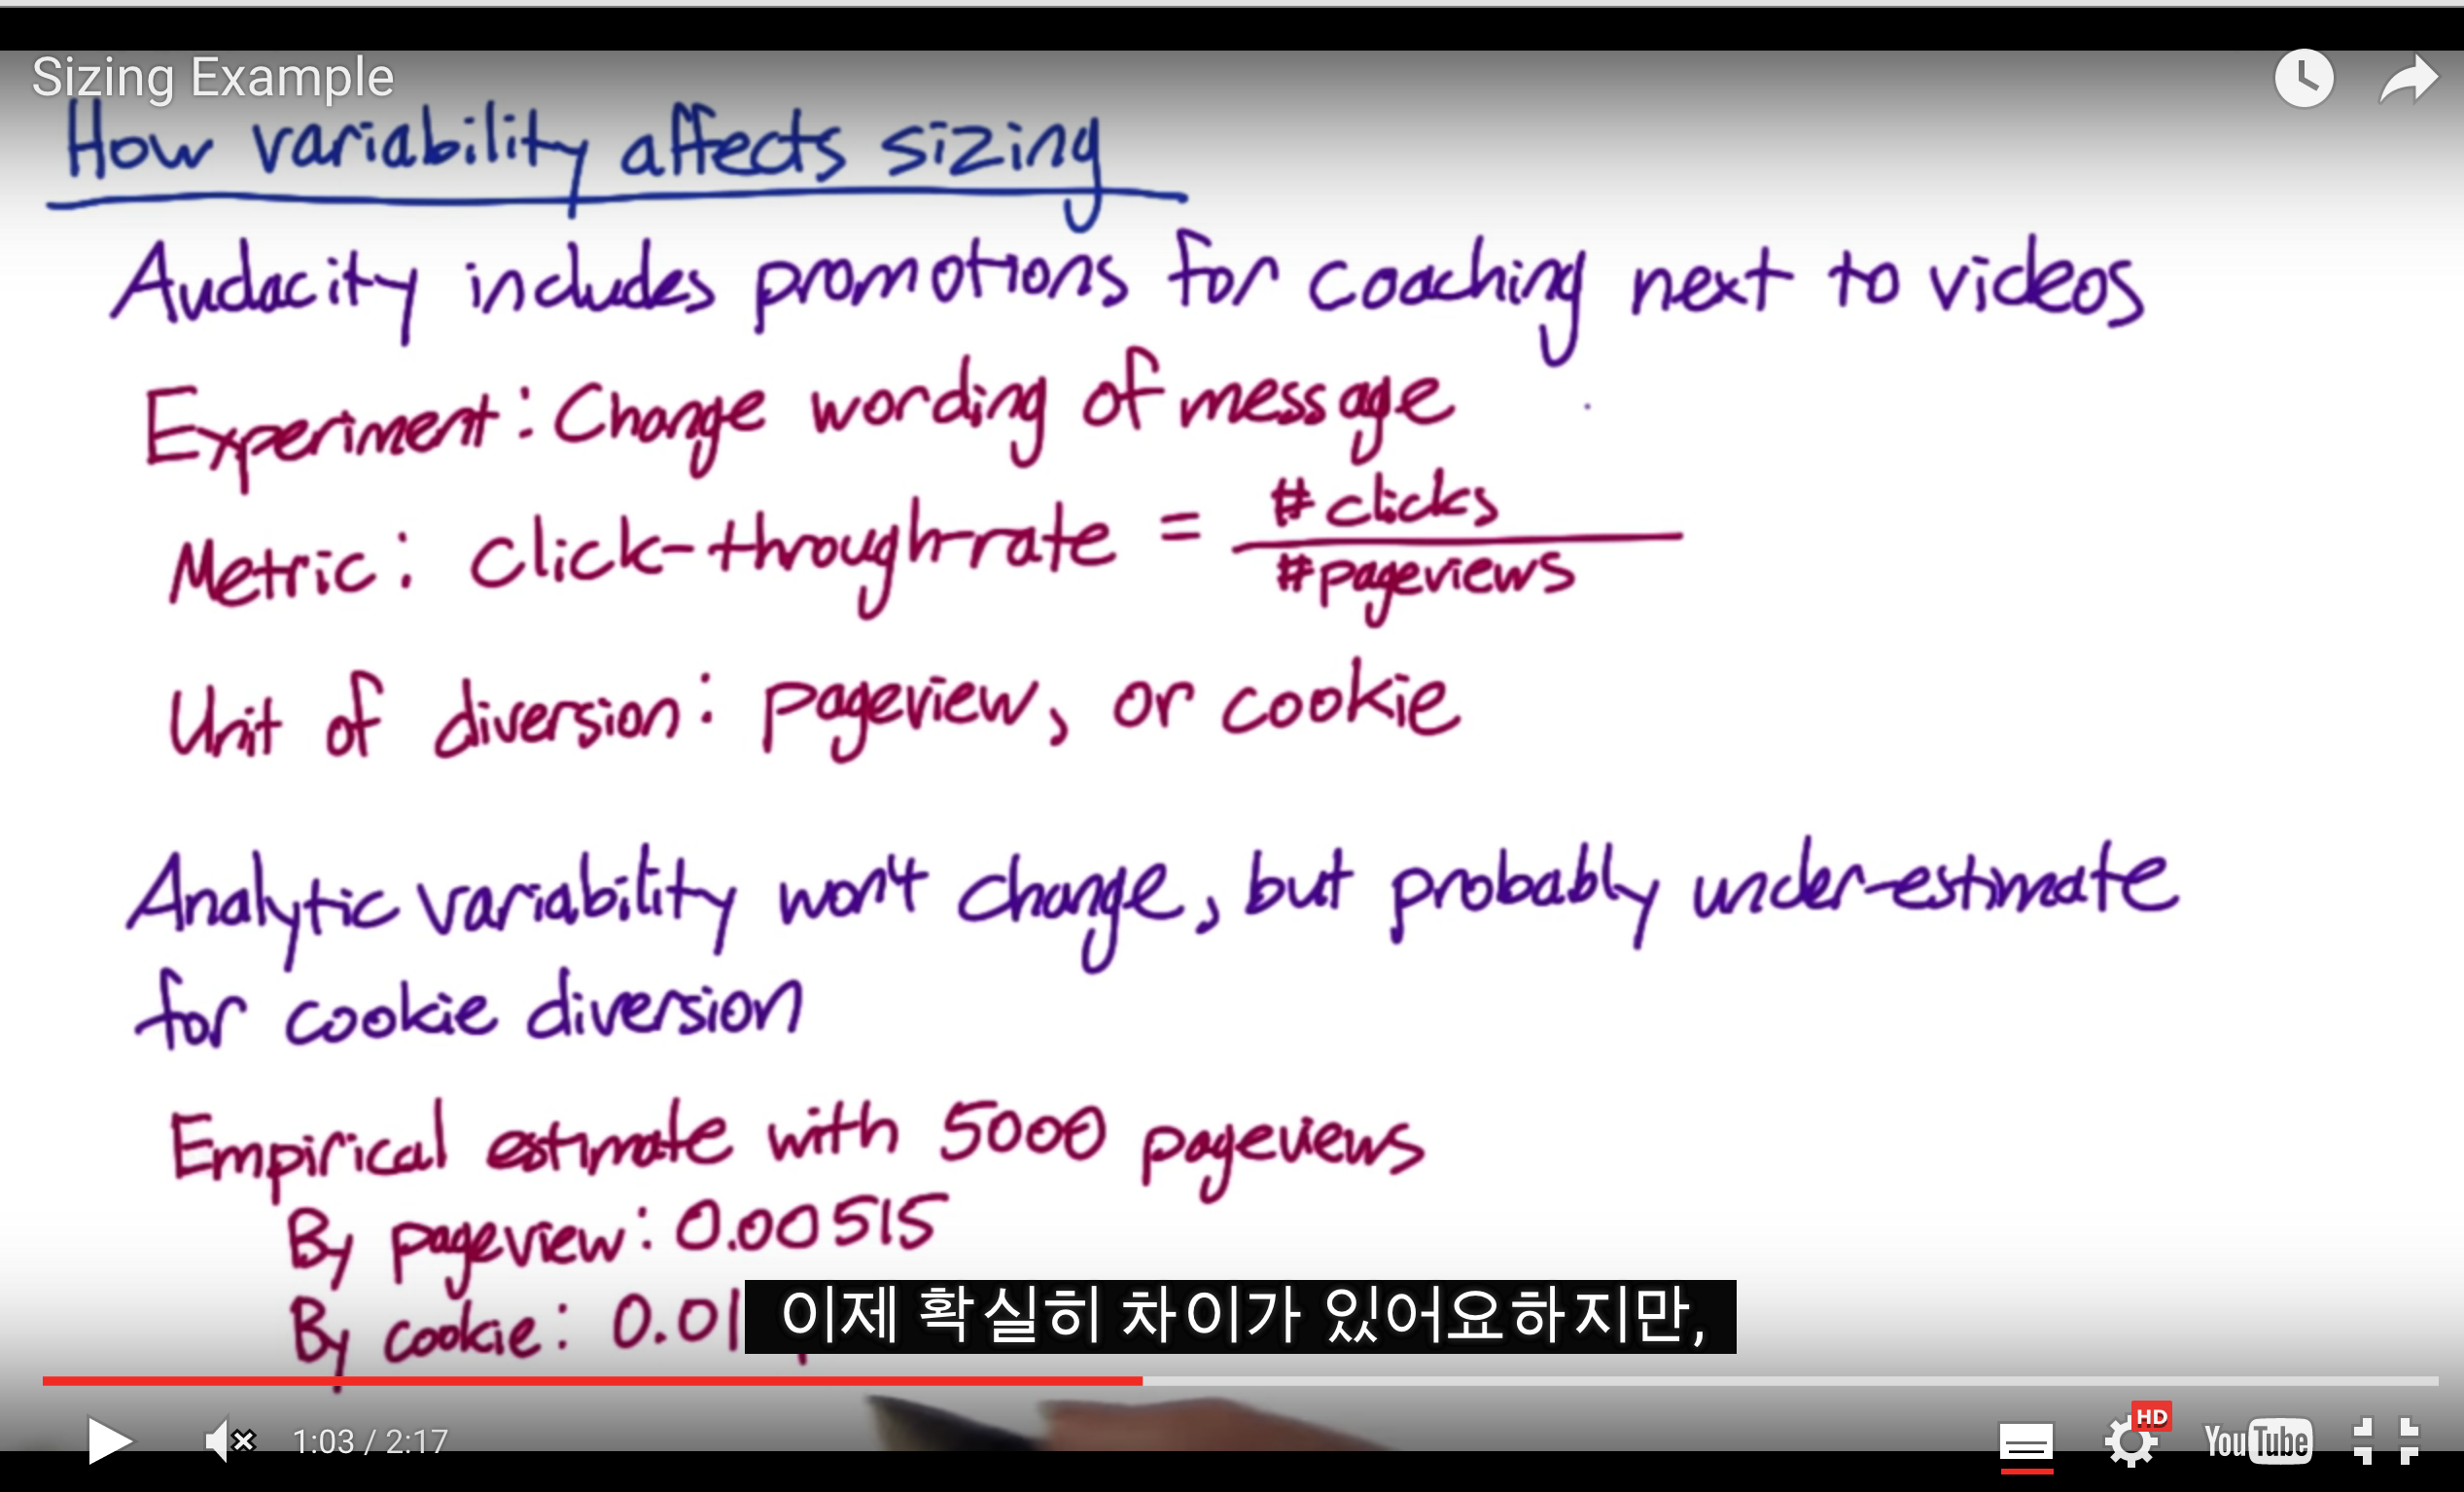 Sizing Example
How variability affects sizing
Audacity includes promotions for coaching next to videos
Experiment: Change wording of message
Metric: click-through-rate = #clicks
#pageviews
Unit of diversion: pageview, or cookie
Analytic variability won't change, but probably under-estimate
for cookie diversion
Empirical estimate with 5000 pageviews
By pageview: 0.00515
By cookie: 0.01
이제 확실히 차이가 있어요하지만,
1:03 / 2:17
HD
YouTube